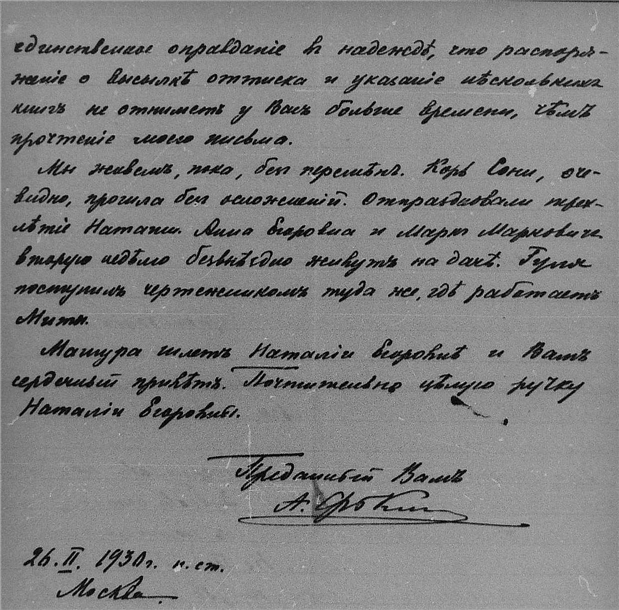 единственное оправданіе въ надеждѣ, что распоря-
женіе о высылкѣ оттиска и указаніе нѣсколькихъ
книгъ не отниметъ у Васъ больше времени, чѣмъ
прочтеніе моего письма.
Мы живемъ, пока, безъ перемѣнъ. Корь Сони, оче-
видно, прошла безъ осложненій. Отпраздновали трех-
лѣтіе Наташи. Анна Егоровна и Маркъ Марковичъ
вторую недѣлю безвыѣздно живутъ на дачѣ. Гуля
поступилъ чертежникомъ туда же, гдѣ работаетъ
Митя.
Машура шлетъ Наталіи Егоровнѣ и Вамъ
сердечный привѣтъ. Почтительно цѣлую ручку
Наталіи Егоровнѣ.
Преданный Вамъ
А.
26. II. 1930г. н. ст.
Москва.